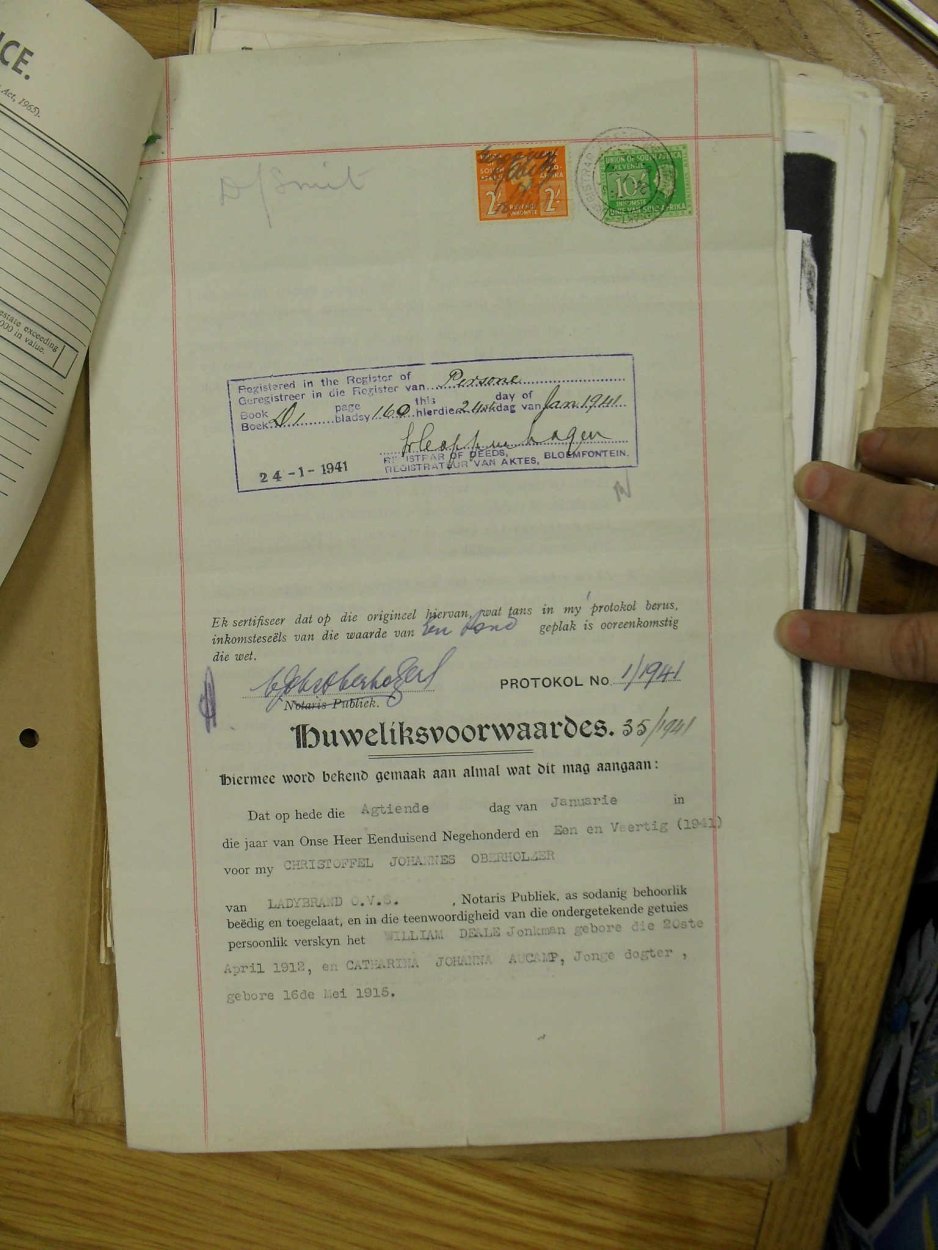 CE.
Act, 1965).
estate exceeding
000 in value.
D/Smit
SOUTH
AFRIKA
2/- REVENUE INKOMSTE 2/-
UNION OF SOUTH AFRICA
REVENUE
10/-
INKOMSTE
UNIE VAN SUID-AFRIKA
Registered in the Register of
Geregistreer in die Register van Persone
Book page this day of
Boek D1 bladsy 160 hierdie 24ste dag van Jan 1941
24-1-1941
REGISTRAR OF DEEDS,
REGISTRATEUR VAN AKTES, BLOEMFONTEIN.
Ek sertifiseer dat op die origineel hiervan, wat tans in my protokol berus,
inkomsteseëls van die waarde van Een Pond geplak is ooreenkomstig
die wet.
CJ Oberholzer
Notaris Publiek.
PROTOKOL No. 1/1941
Huweliksvoorwaardes. 35/1941
Hiermee word bekend gemaak aan almal wat dit mag aangaan:
Dat op hede die Agtiende dag van Januarie in
die jaar van Onse Heer Eenduisend Negehonderd en Een en Veertig (1941)
voor my CHRISTOFFEL JOHANNES OBERHOLZER
van LADYBRAND O.V.S. , Notaris Publiek, as sodanig behoorlik
beëdig en toegelaat, en in die teenwoordigheid van die ondergetekende getuies
persoonlik verskyn het WILLIAM DEALE Jonkman gebore die 20ste
April 1912, en CATHARINA JOHANNA AUCAMP, Jonge dogter ,
gebore 16de Mei 1915.